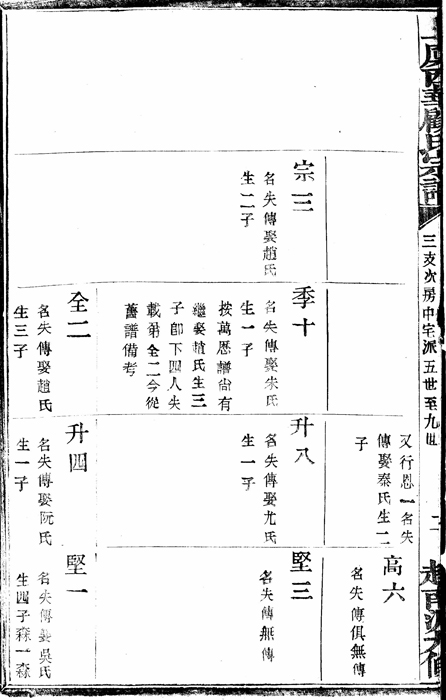 上虞西華顧氏宗譜
三支次房中宅派五世至九世
二
宗三
名失傳娶趙氏
生二子
季十
名失傳娶朱氏
生一子
按萬厯譜尙有
繼娶趙氏生三
子卽下四人失
載第全二今從
舊譜備考
全二
名失傳娶趙氏
生三子
又行恩一名失
傳娶秦氏生二
子
升八
名失傳娶尤氏
生一子
升四
名失傳娶阮氏
生一子
高六
名失傳俱無傳
堅三
名失傳無傳
堅一
名失傳娶吳氏
生四子森一森